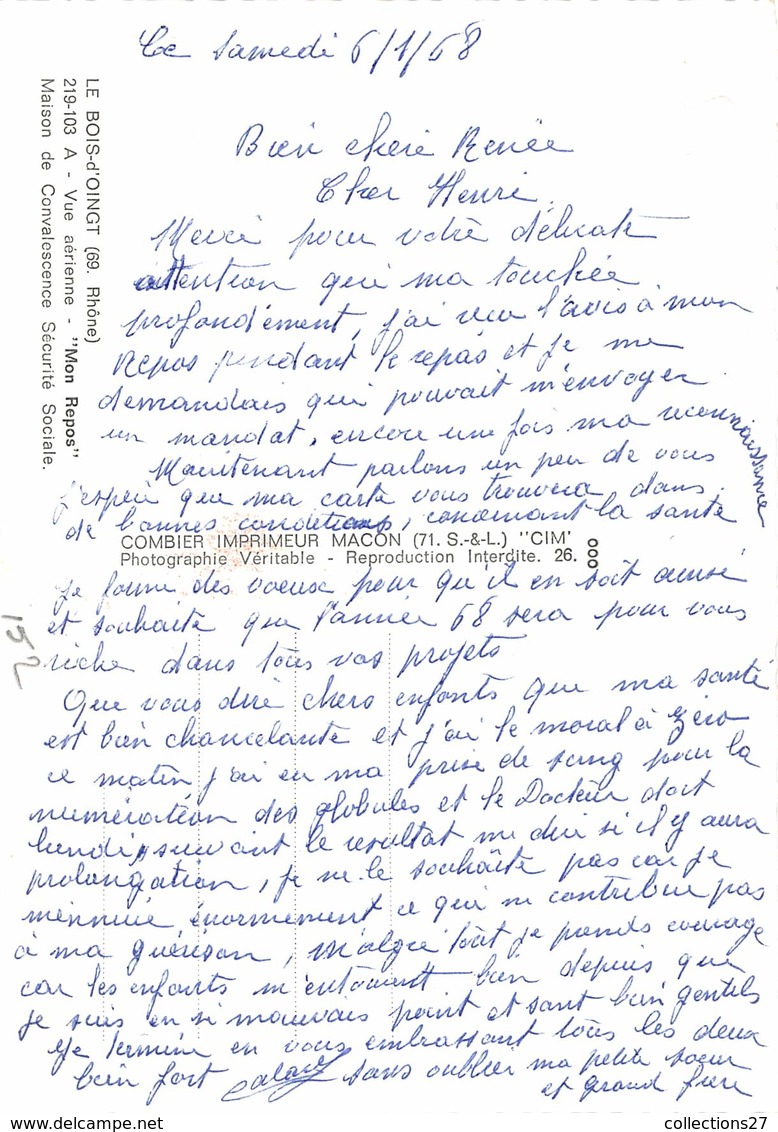 Ce Samedi 6/1/68
Bien chère Renée
Cher Henri.
Merci pour votre délicate
attention qui ma touchée
profondément, j'ai reçu l'avis à mon
Repos pendant le repas et je me
demandais qui pouvait m'envoyer
un mandat, encore une fois ma reconnaissance
Maintenant parlons un peu de vous
j'espère que ma carte vous trouvera dans
de bonnes conditions, concernant la santé
je forme des voeux pour qu'il en soit ainsi
et souhaite que l'année 68 sera pour vous
riche dans tous vos projets
Que vous dire chers enfants que ma santé
est bien chancelante et j'ai le moral à zéro
ce matin j'ai eu ma prise de sang pour la
numération des globules et le Docteur doit
lundi, suivant le résultat me dire si il y aura
prolongation, je ne le souhaite pas car je
m'ennuie énormément ce qui ne contribue pas
à ma guérison, malgré tout je prends courage
car les enfants m'entourent bien depuis que
je suis en si mauvais point et sont bien gentils
Je termine en vous embrassant tous les deux
bien fort sans oublier ma petite soeur
et grand frère
LE BOIS-d'OINGT (69. Rhône)
219-103 A - Vue aérienne - "Mon Repos"
Maison de Convalescence Sécurité Sociale.
COMBIER IMPRIMEUR MACON (71. S.-&-L.) "CIM"
Photographie Véritable - Reproduction Interdite. 26.
000
152
collections27